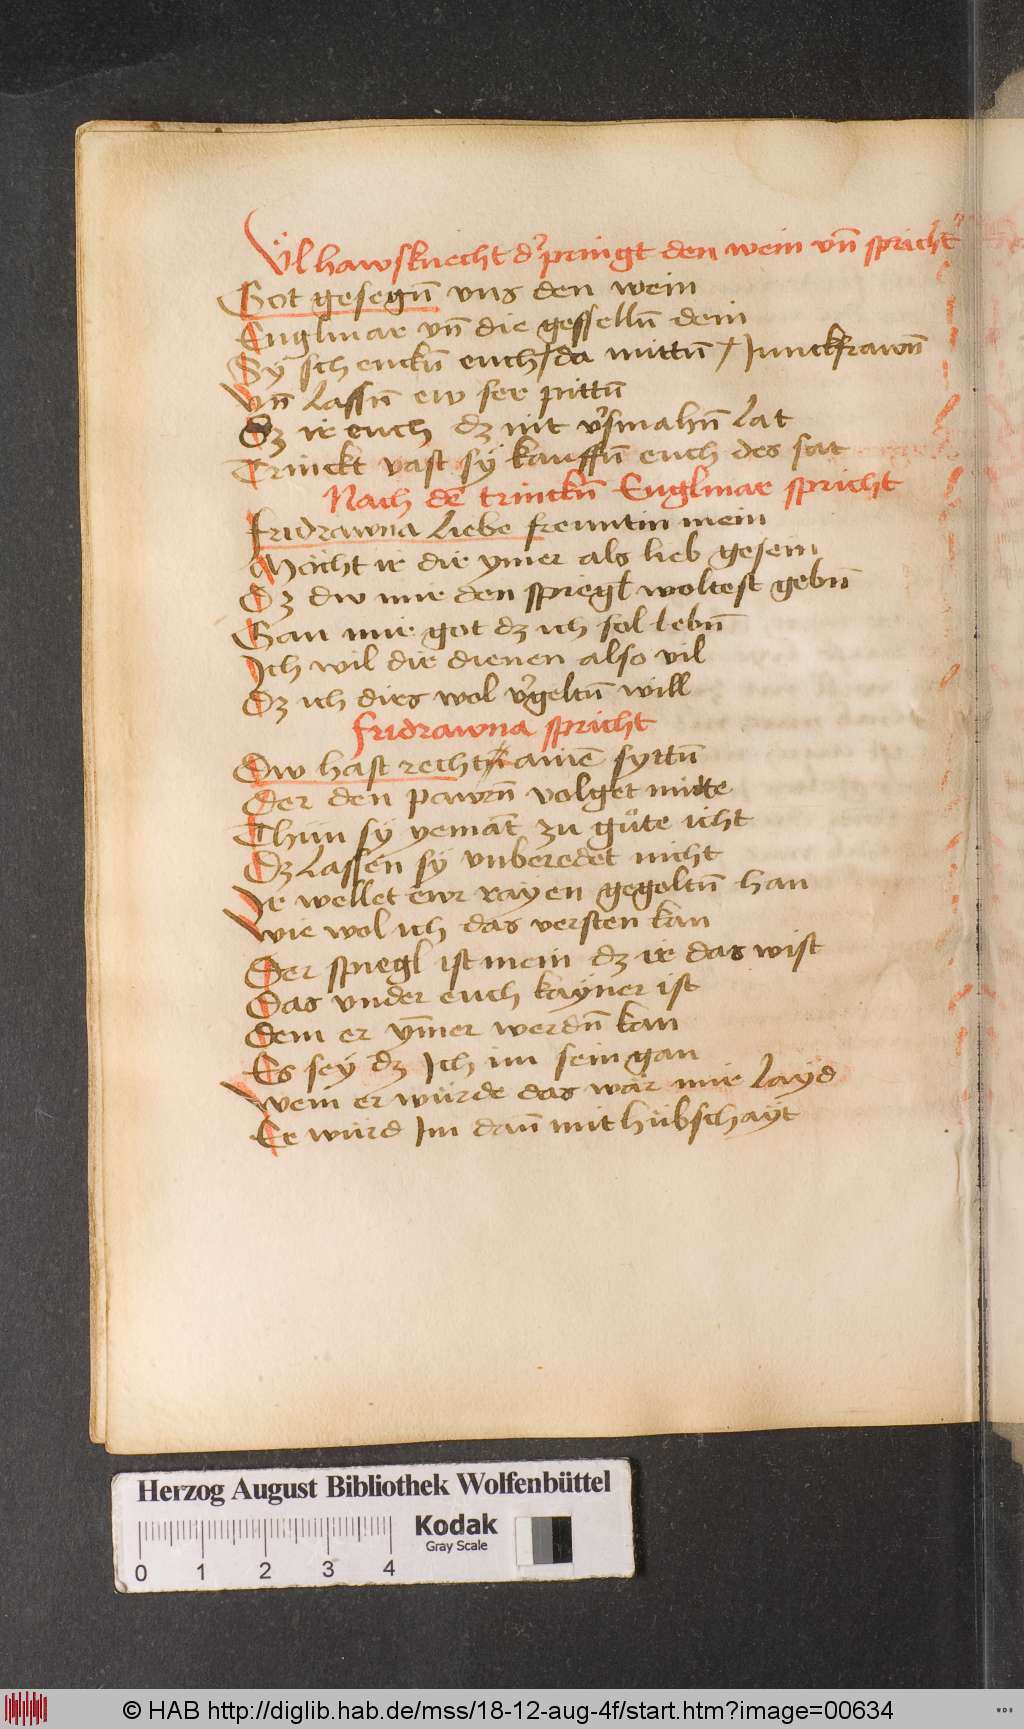 Ül hawsknecht d' pringt den wein vn̄ spricht
Got gesegn̄ vns den wein
Englmar vn̄ die gesselln̄ dein
Sÿ schenckn̄ euch / da mittn̄ / Junckfrawn̄
Vn̄ lassn̄ ew ser pittn̄
Dz ir euch dz nit v'smahn̄ lat
Trinckt vast sÿ kauffn̄ euch des sat
Nach de᷑ trinckn̄ Englmar spricht
fridrawna liebe freuntin mein
Möcht ir dir ymer als lieb gesein
Dz dw mir den spiegl woltest gebn̄
Gan mir got dz ich sol lebn̄
Ich wil dir dienen also vil
Dz ich dirs wol v'geltn̄ will
fridrawna spricht
Dw hast recht ainē syttn̄
Der den pawrn̄ volget mitte
Thün sÿ yemāt zu gůte icht
Dz lassen sÿ vnberedet nicht
Ir wellet ewr rayen gegoltn̄ han
Wie wol ich das versten kan
Der spiegl ist mein dz ir das wist
Das vnder euch kayner ist
Dem er ym̄er werdn̄ kan
Es sey dz Ich im sein gan
Wem er würde das wär mir layd
Er würd Im dan̄ mit hübschayt
Herzog August Bibliothek Wolfenbüttel
Kodak
Gray Scale
0 1 2 3 4
© HAB http://diglib.hab.de/mss/18-12-aug-4f/start.htm?image=00634